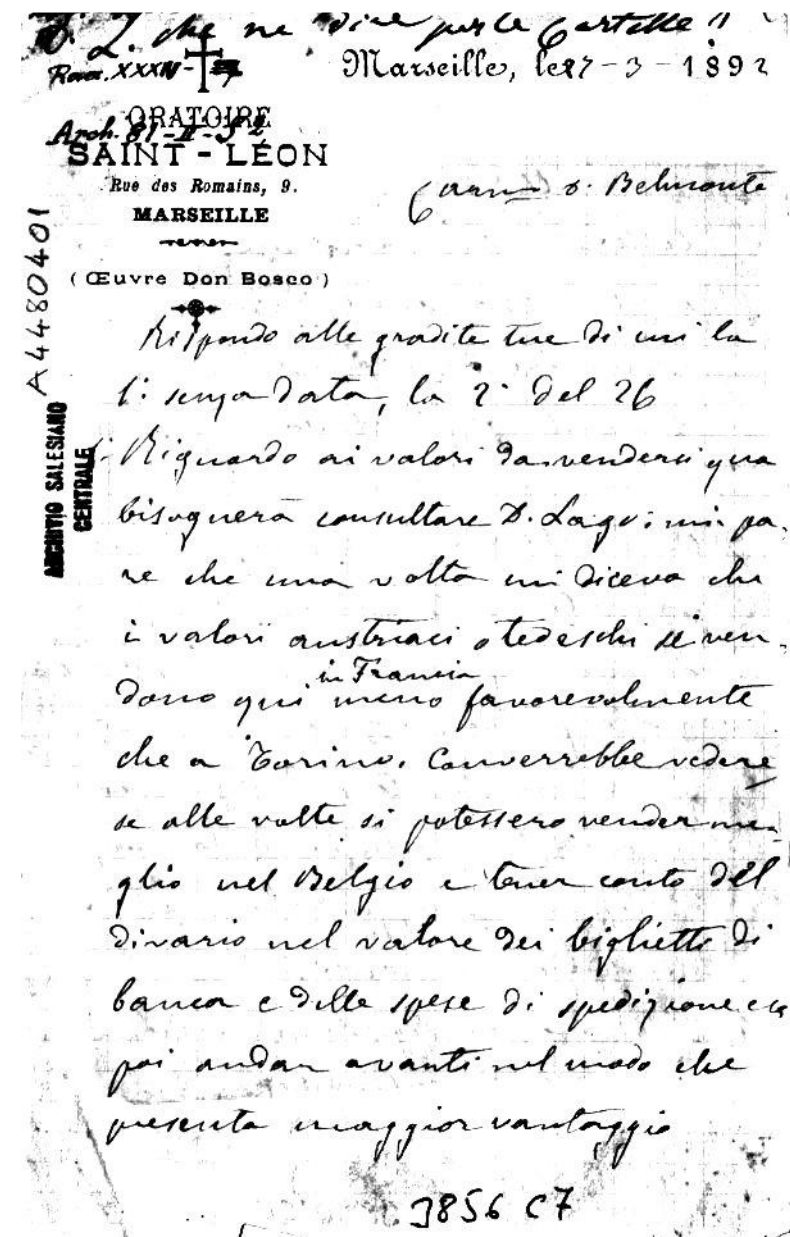 D. L. che ne dice per le Cartelle !
Marseille, le 27-3-1892
ORATOIRE
Arch. 81-II-S2
SAINT-LÉON
Rue des Romains, 9.
MARSEILLE
(Œuvre Don Bosco)
D. Belmonte
A4480401
ARCHIVIO SALESIANO
CENTRALE
Rispondo alle gradite tue di cui la
1: senza data, la 2: del 26
1: Riguardo ai valori da vendersi qua
bisognerà consultare D. Lago: mi pa-
re che una volta mi diceva che
i valori austriaci o tedeschi si ven-
in Francia
dono qui meno favorevolmente
che a Torino. Converrebbe vedere
se alle volte si potessero vender me-
glio nel Belgio e tener conto del
divario nel valore dei biglietti di
banca e delle spese di spedizione ecc
poi andar avanti nel modo che
presenta maggior vantaggio
3856 C7